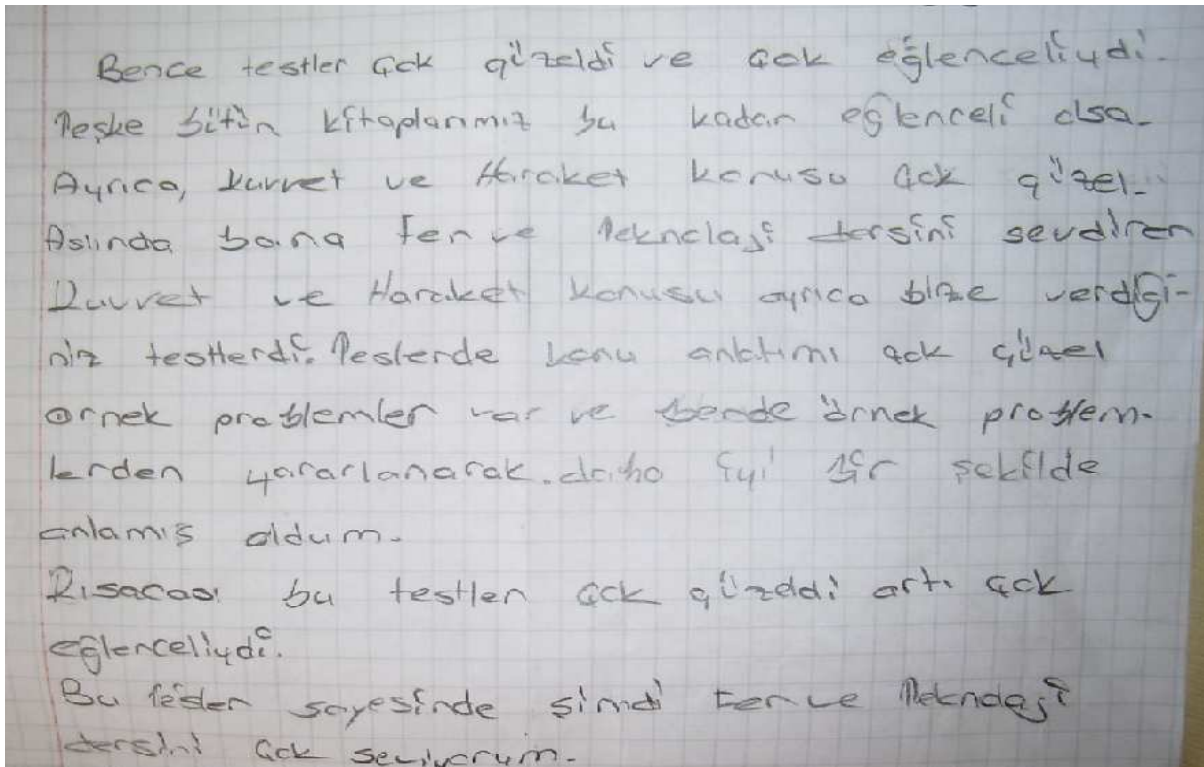 Bence testler çok güzeldi ve çok eğlenceliydi.
Keşke bütün kitaplarımız bu kadar eğlenceli olsa.
Ayrıca, kuvvet ve Haraket konusu çok güzel.
Aslında bana Fen ve Teknoloji dersini sevdiren
Kuvvet ve Haraket konusu ayrıca bize verdiği-
niz testlerdi. Testlerde konu anlatımı çok güzel
örnek problemler var ve bende örnek problem-
lerden yararlanarak daha iyi bir şekilde
anlamış oldum.
Kısacası bu testler çok güzeldi artı çok
eğlenceliydi.
Bu testler sayesinde şimdi Fen ve Teknoloji
dersini çok seviyorum.